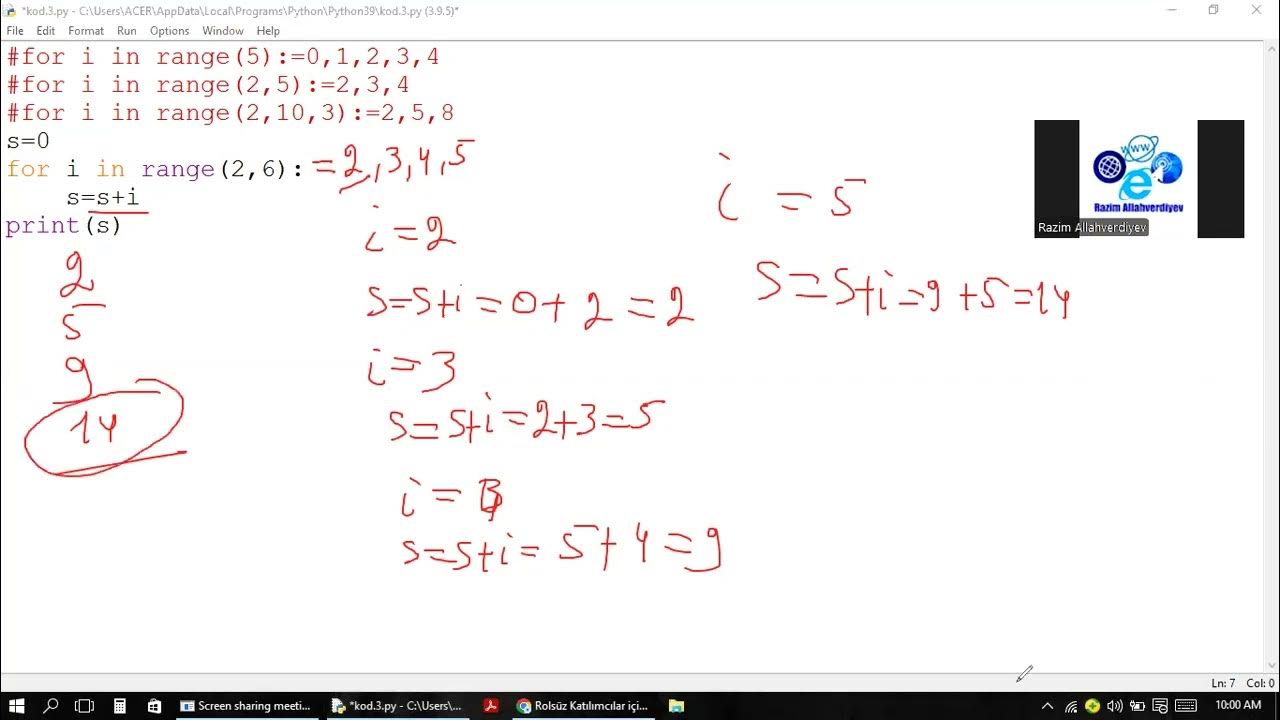 *kod.3.py - C:\Users\ACER\AppData\Local\Programs\Python\Python39\kod.3.py (3.9.5)*
File Edit Format Run Options Window Help
#for i in range(5):=0,1,2,3,4
#for i in range(2,5):=2,3,4
#for i in range(2,10,3):=2,5,8
s=0
for i in range(2,6): =2,3,4,5
s=s+i
print(s)
2
5
9
14
i=2
s=s+i=0+2=2
i=3
s=s+i=2+3=5
i=4
s=s+i=5+4=9
i=5
s=s+i=9+5=14
www
Razim Allahverdiyev
Razim Allahverdiyev
Ln: 7 Col: 0
Screen sharing meeti...
*kod.3.py - C:\Users\...
Rolsüz Katılımcılar içi...
10:00 AM